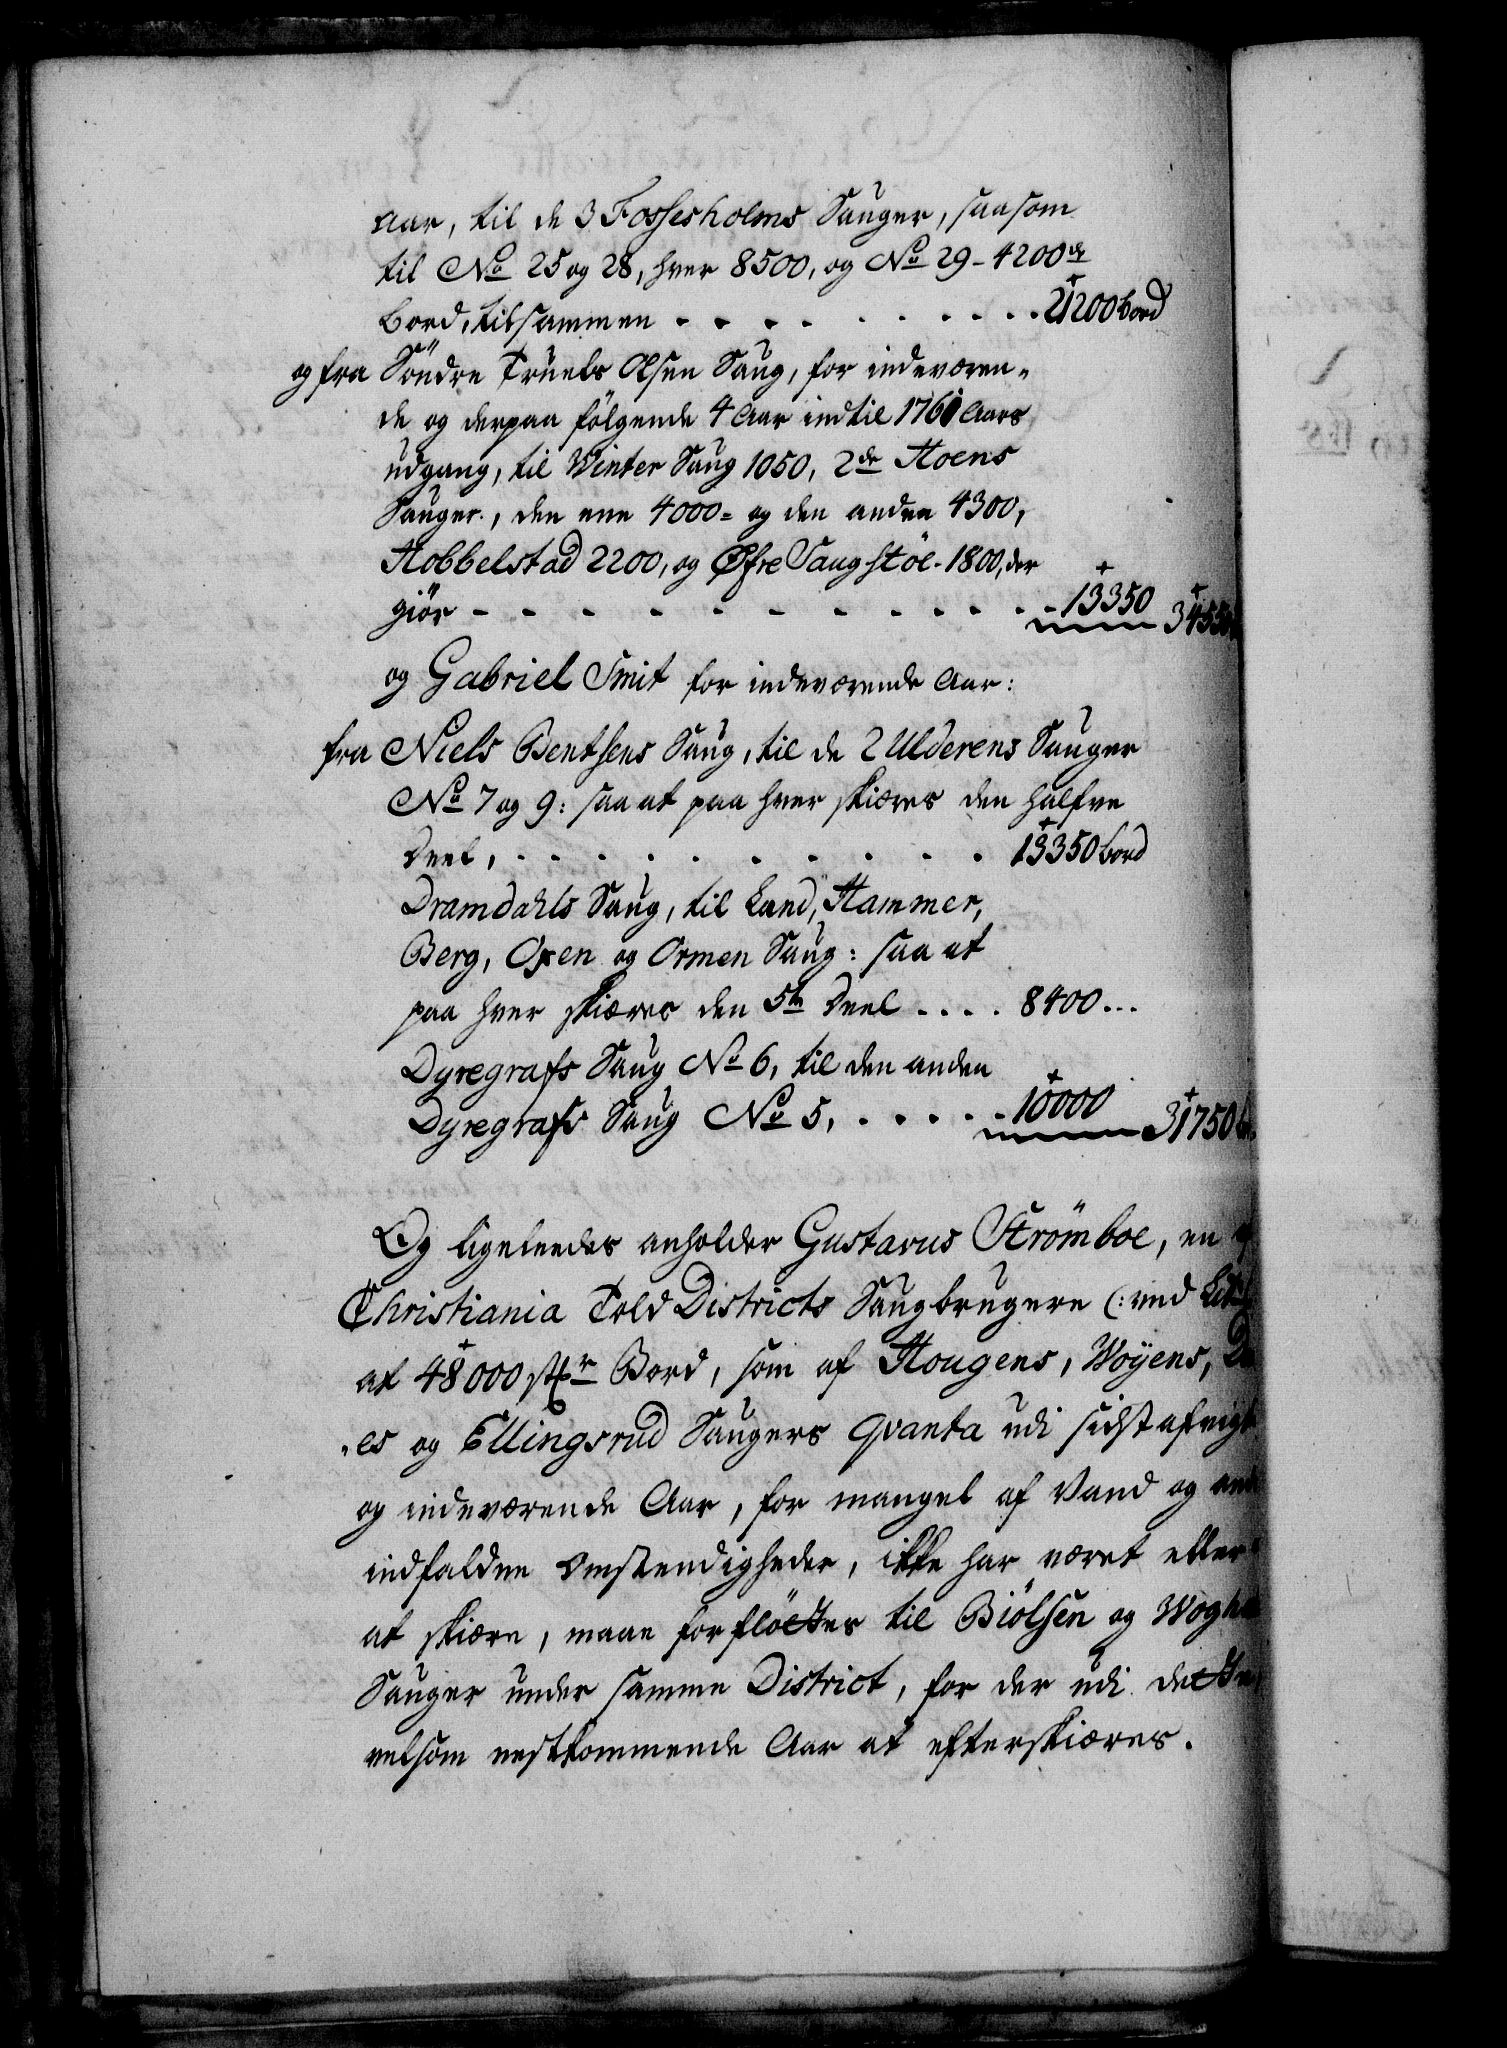 Aar, til de 3 Fossesholms Sauger, saasom
til No 25 og 28, hver 8500, og No 29 - 4200de
Bord, tilsammen . . . . . . . . . . 21200 bord
og fra Söndre Truels Olsen Saug, for indeværen-
de og derpaa følgende 4 Aar indtil 1761 Aars
udgang, til Winter Saug 1050, 2de Hoens
Sauger, den ene 4000 = og den anden 4300,
Hobbelstad 2200, og Øfre Saugstöe - 1800, der
giör - - - - - - - - - - - - 13350 34550
og Gabriel Smit for indeværende Aar:
fra Niels Bentsens Saug, til de 2 Ulderens Sauger
No 7 og 9: saa at paa hver skiæres den halfve
Deel, . . . . . . . . . . 13350 bord
Dramdahls Saug, til Land, Hammer,
Berg, Oxen og Ormen Saug: saa at
paa hver skiæres den 5te Deel . . . . 8400 ...
Dyregrafs Saug No 6, til den anden
Dyregrafs Saug No 5, . . . . . 10000 31750
Og ligeleedes anholder Gustavus Strömboe, en
Christiania Told Districts Saugbrugere (: ved
at 48000 stkr Bord, som af Hougens, Woyens,
-es og Ellingsrud Saugers qvanta udi sidst afvigte
og indeværende Aar, for mangel af Vand og
indfaldne Omstendigheder, ikke har været eller
at skiære, maae forflöttes til Biölsen og
Sauger under samme District, for der udi dette
velsom nestkommende Aar at efterskiæres.